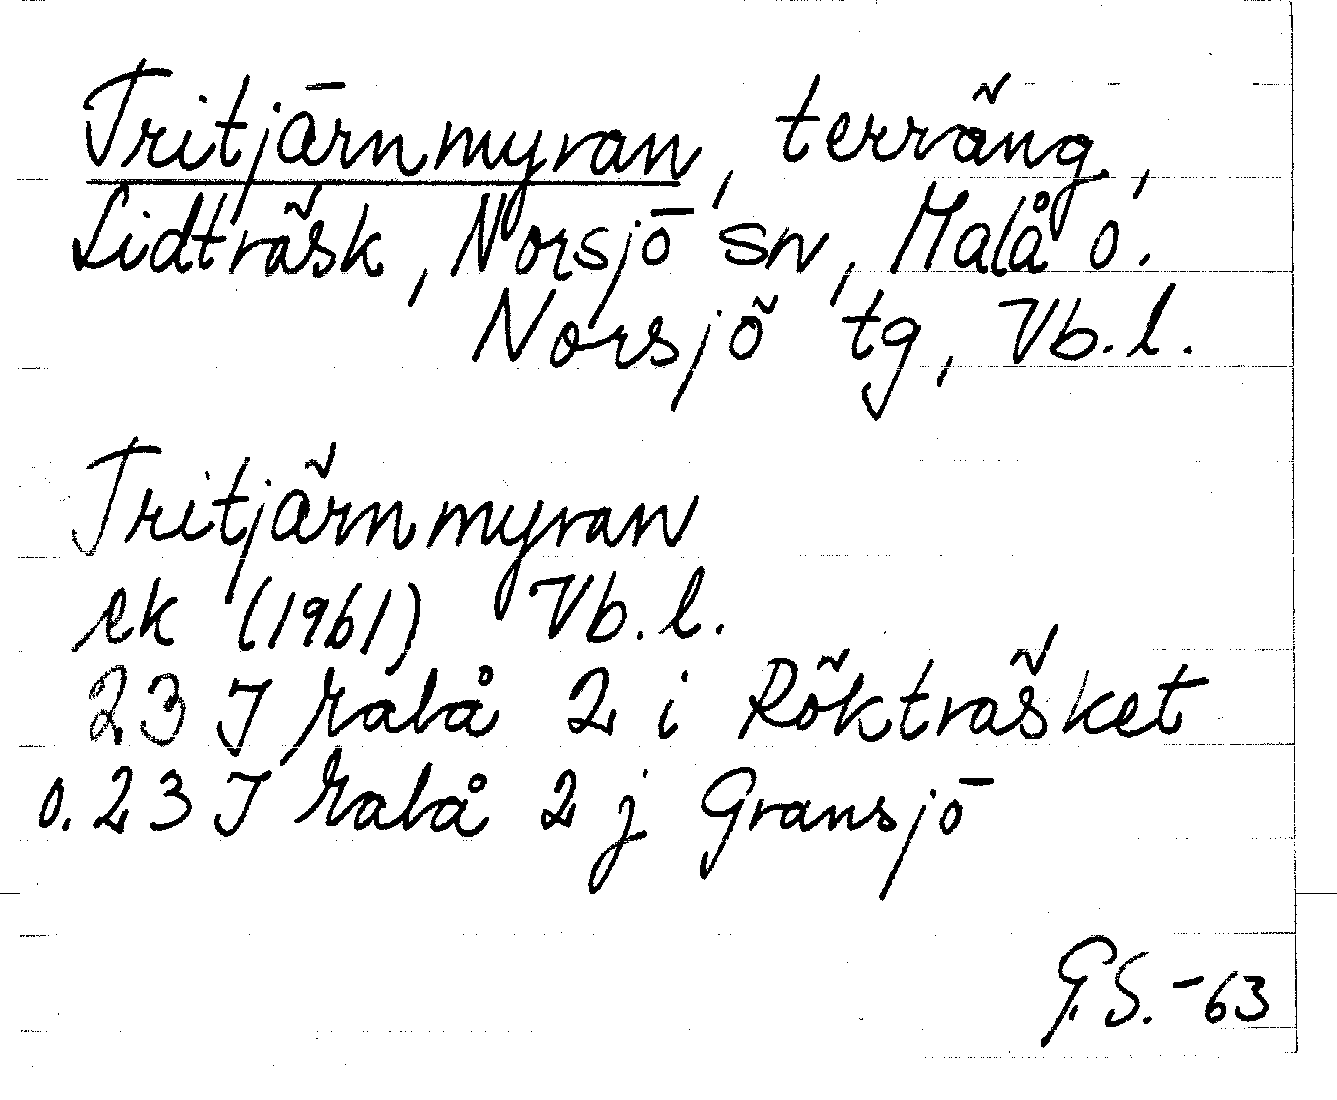 Tritjärnmyran, terräng,
Lidträsk, Norsjö sn, Malå o.
Norsjö tg, Vb. l.
Tritjärnmyran
ek (1961) Vb. l.
23 J Malå 2 i Rökträsket
o. 23 J Malå 2 j Gransjö
G.S. -63